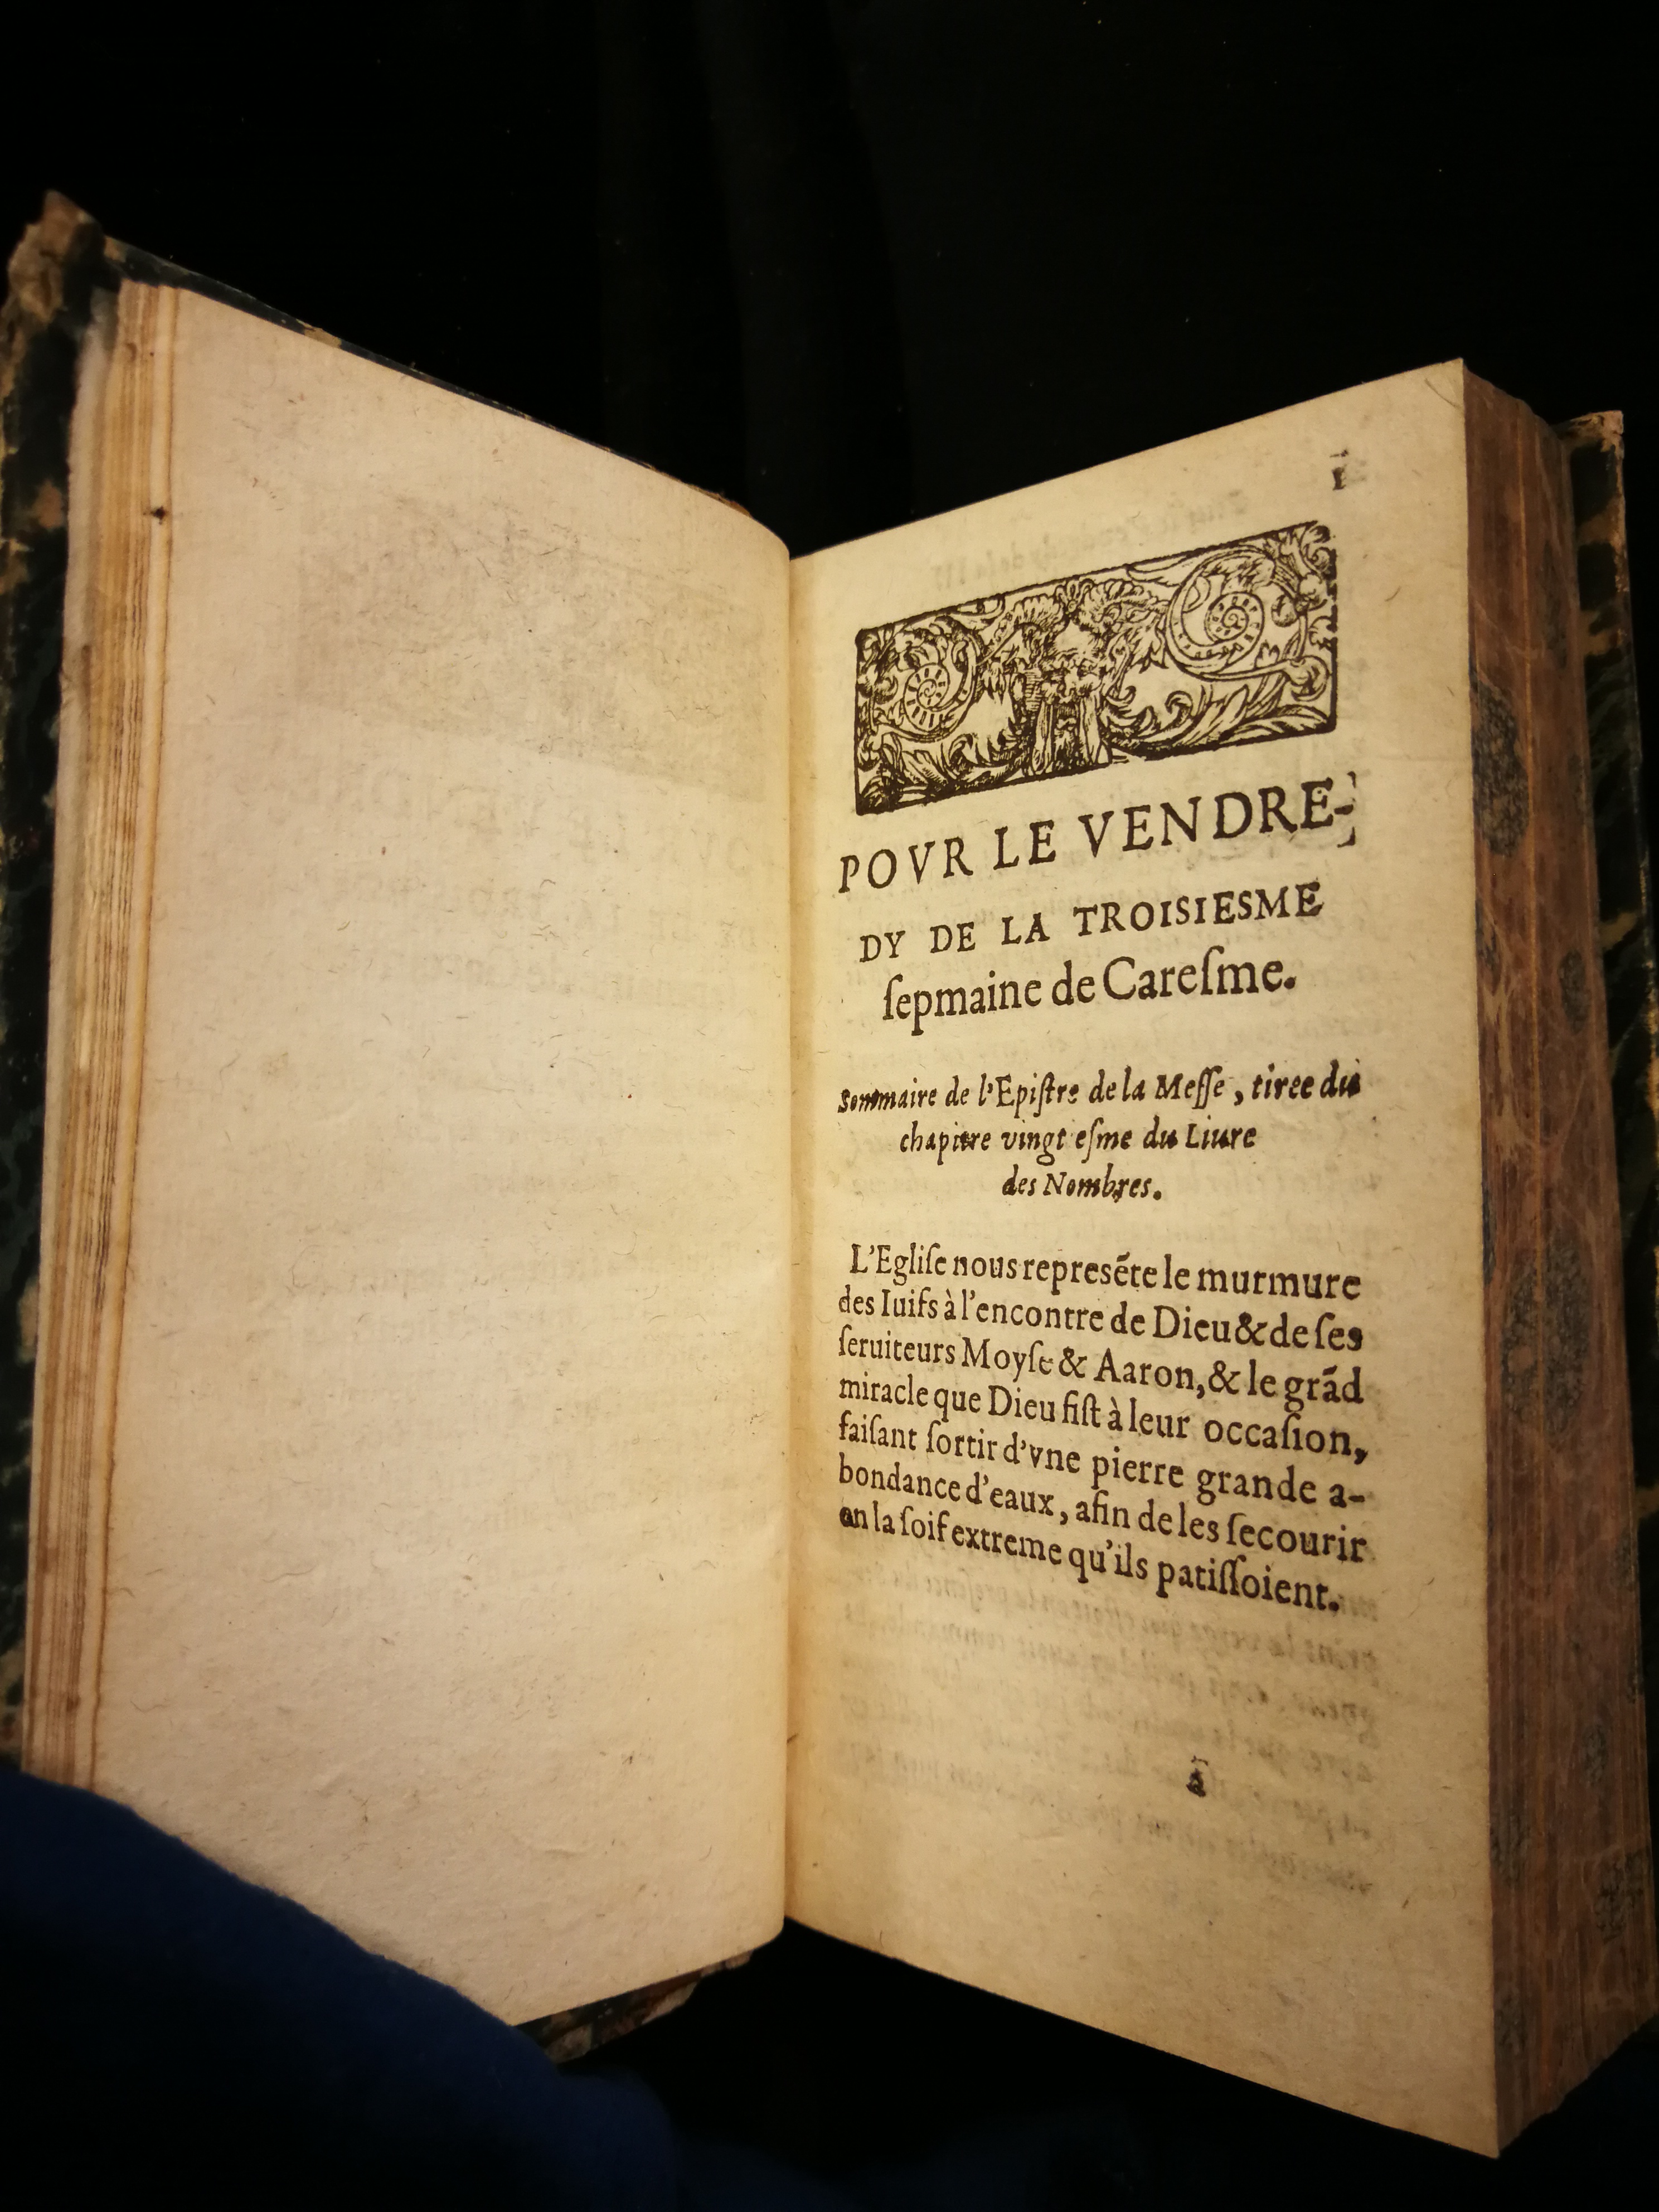 1
POVR LE VENDRE-
DY DE LA TROISIESME
ſepmaine de Careſme.
Sommaire de l'Epiſtre de la Meſſe, tiree du
chapitre vingt eſme du Liure
des Nombres.
L'Egliſe nous represẽte le murmure
des Iuifs à l'encontre de Dieu & de ſes
ſeruiteurs Moyſe & Aaron, & le grãd
miracle que Dieu fiſt à leur occaſion,
faiſant ſortir d'vne pierre grande a-
bondance d'eaux, afin de les ſecourir
en la ſoif extreme qu'ils patiſſoient.